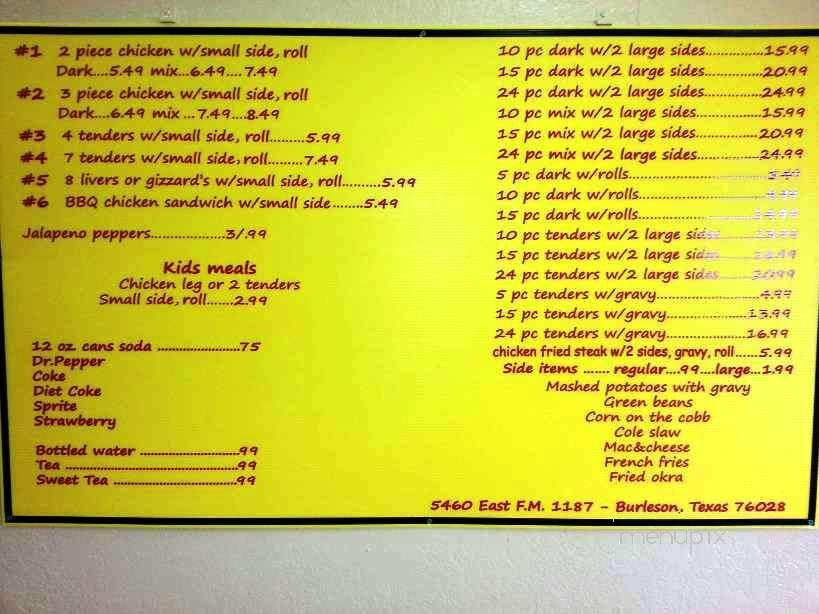 #1 2 piece chicken w/small side, roll
Dark....5.49 mix...6.49....7.49
#2 3 piece chicken w/small side, roll
Dark....6.49 mix ...7.49...8.49
#3 4 tenders w/small side, roll.........5.99
#4 7 tenders w/small side, roll.........7.49
#5 8 livers or gizzard's w/small side, roll..........5.99
#6 BBQ chicken sandwich w/small side........5.49
Jalapeno peppers...................3/.99
Kids meals
Chicken leg or 2 tenders
Small side, roll.......2.99
12 oz. cans soda ........................75
Dr.Pepper
Coke
Diet Coke
Sprite
Strawberry
Bottled water ............................99
Tea ...........................................99
Sweet Tea ...............................99
10 pc dark w/2 large sides...............15.99
15 pc dark w/2 large sides...............20.99
24 pc dark w/2 large sides...............24.99
10 pc mix w/2 large sides................15.99
15 pc mix w/2 large sides................20.99
24 pc mix w/2 large sides................24.99
5 pc dark w/rolls
10 pc dark w/rolls
15 pc dark w/rolls
10 pc tenders w/2 large sides
15 pc tenders w/2 large sides
24 pc tenders w/2 large sides
5 pc tenders w/gravy..........................4.99
15 pc tenders w/gravy.....................13.99
24 pc tenders w/gravy.....................16.99
chicken fried steak w/2 sides, gravy, roll......5.99
Side items ....... regular....99....large...1.99
Mashed potatoes with gravy
Green beans
Corn on the cobb
Cole slaw
Mac&cheese
French fries
Fried okra
5460 East F.M. 1187 - Burleson, Texas 76028
menupix